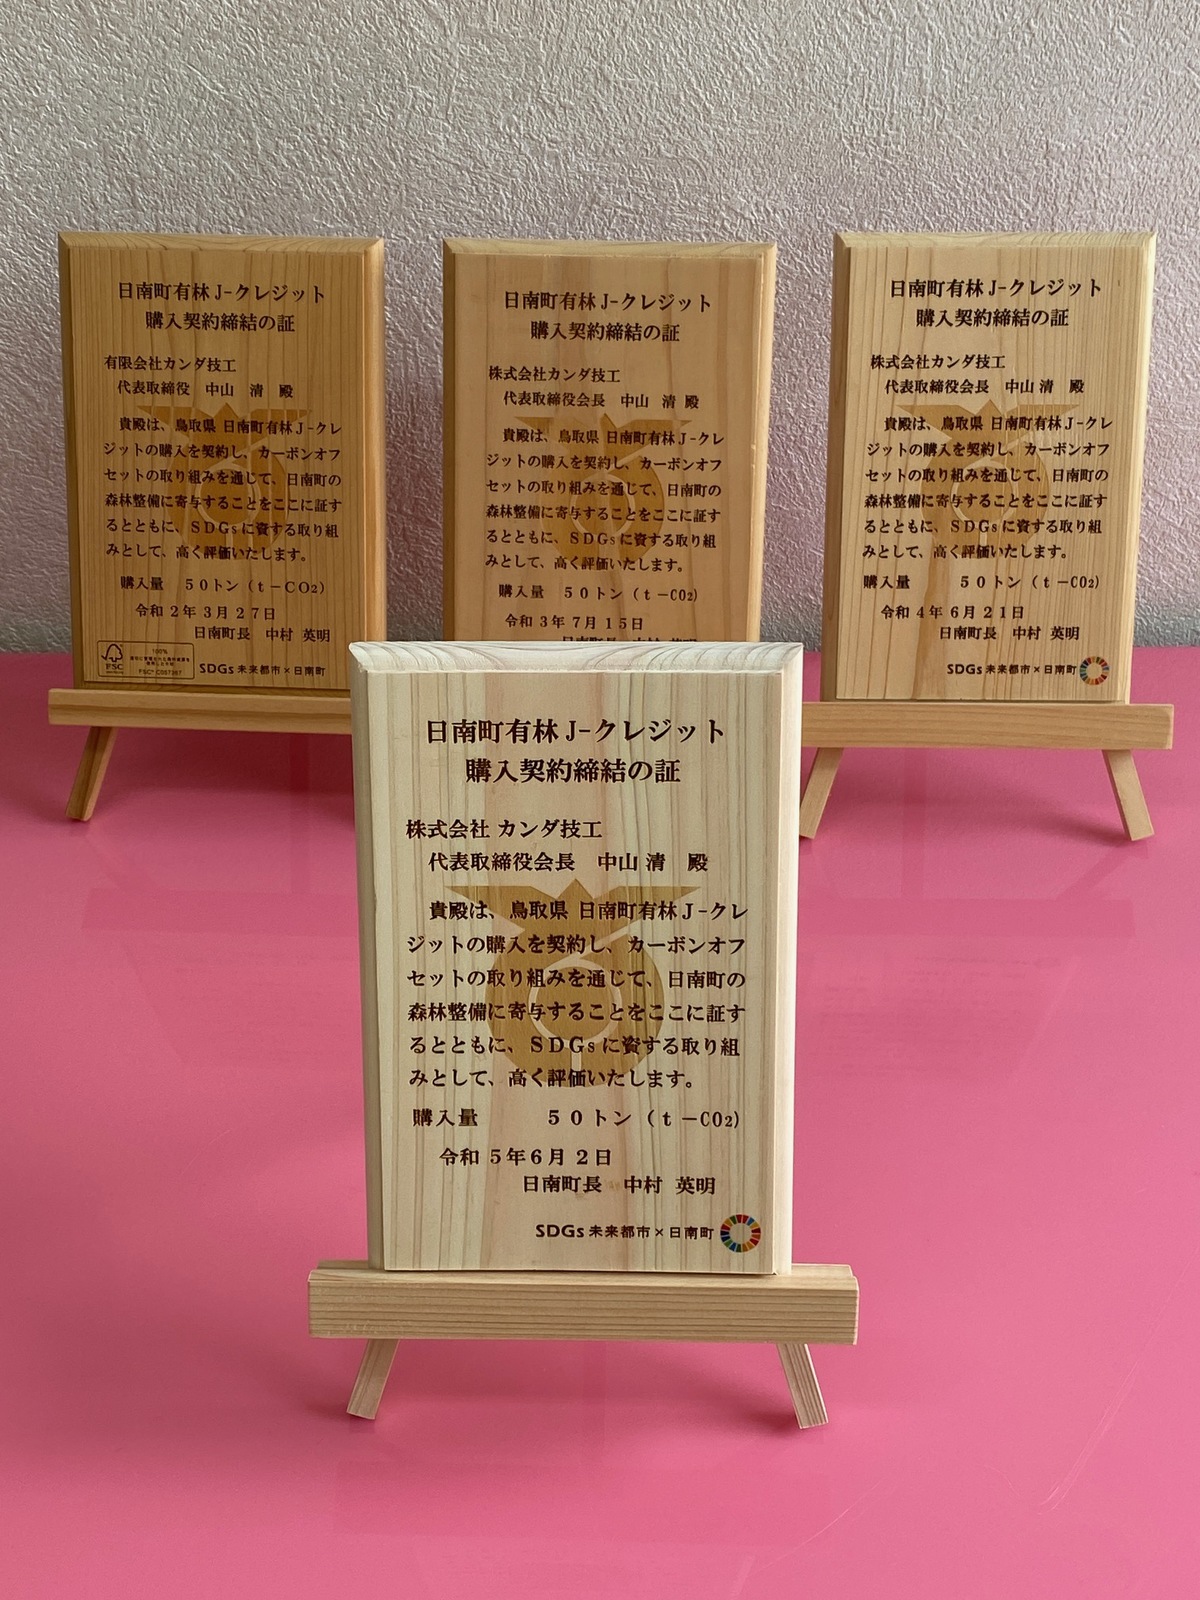 日南町有林J-クレジット
購入契約締結の証
有限会社カンダ技工
代表取締役 中山 清 殿
貴殿は、鳥取県 日南町有林J-クレ
ジットの購入を契約し、カーボンオフ
セットの取り組みを通じて、日南町の
森林整備に寄与することをここに証す
るとともに、SDGsに資する取り組
みとして、高く評価いたします。
購入量 50トン(t-CO2)
令和2年3月27日
日南町長 中村 英明
FSC
100%
FSC® C007267
SDGs未来都市×日南町
日南町有林J-クレジット
購入契約締結の証
株式会社カンダ技工
代表取締役会長 中山 清 殿
貴殿は、鳥取県 日南町有林J-クレ
ジットの購入を契約し、カーボンオフ
セットの取り組みを通じて、日南町の
森林整備に寄与することをここに証す
るとともに、SDGsに資する取り組
みとして、高く評価いたします。
購入量 50トン(t-CO2)
令和3年7月15日
日南町長 中村 英明
日南町有林J-クレジット
購入契約締結の証
株式会社カンダ技工
代表取締役会長 中山 清 殿
貴殿は、鳥取県 日南町有林J-クレ
ジットの購入を契約し、カーボンオフ
セットの取り組みを通じて、日南町の
森林整備に寄与することをここに証す
るとともに、SDGsに資する取り組
みとして、高く評価いたします。
購入量 50トン(t-CO2)
令和4年6月21日
日南町長 中村 英明
SDGs未来都市×日南町
日南町有林J-クレジット
購入契約締結の証
株式会社 カンダ技工
代表取締役会長 中山 清 殿
貴殿は、鳥取県 日南町有林J-クレ
ジットの購入を契約し、カーボンオフ
セットの取り組みを通じて、日南町の
森林整備に寄与することをここに証す
るとともに、SDGsに資する取り組
みとして、高く評価いたします。
購入量 50トン(t-CO2)
令和5年6月2日
日南町長 中村 英明
SDGs未来都市×日南町